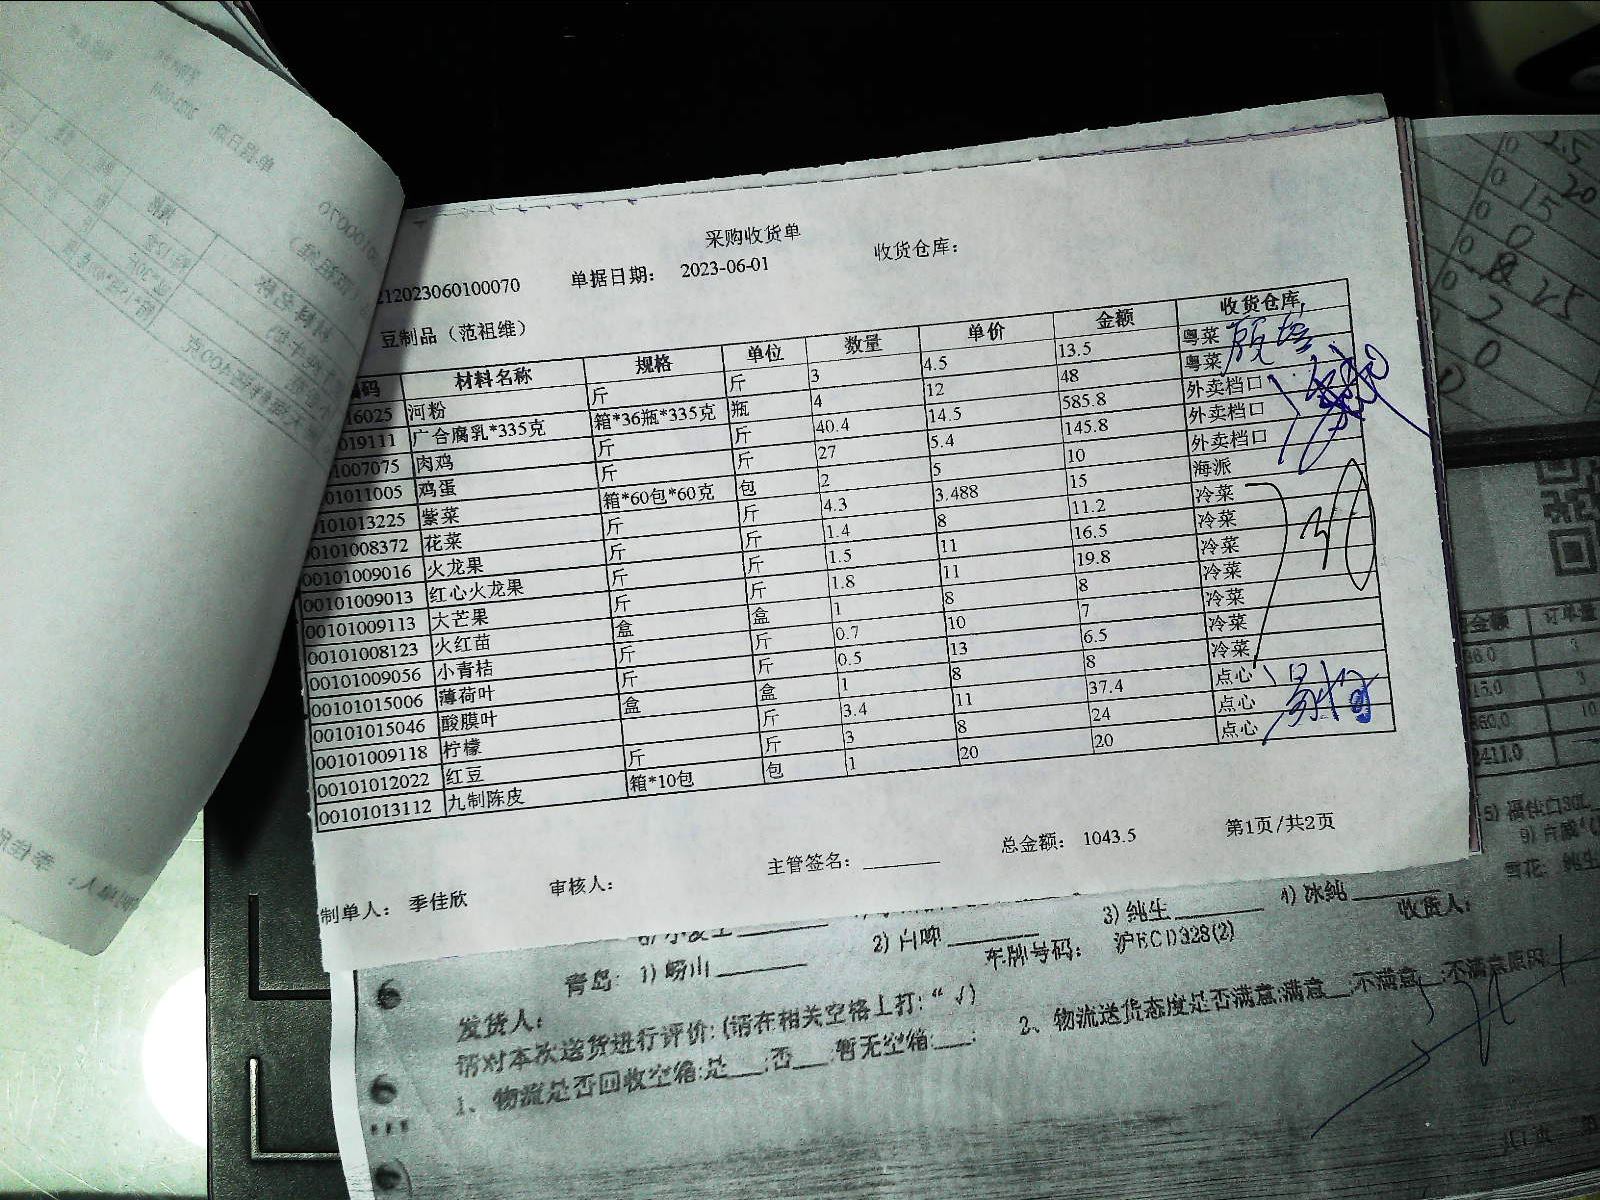 采购收货单
212023060100070 单据日期: 2023-06-01 收货仓库:
豆制品（范祖维）
编码 材料名称 规格 单位 数量 单价 金额 收货仓库
16025 河粉 斤 斤 3 4.5 13.5 粤菜
019111 广合腐乳*335克 箱*36瓶*335克 瓶 4 12 48 粤菜
1007075 肉鸡 斤 斤 40.4 14.5 585.8 外卖档口
01011005 鸡蛋 斤 斤 27 5.4 145.8 外卖档口
101013225 紫菜 箱*60包*60克 包 2 5 10 外卖档口
0101008372 花菜 斤 斤 4.3 3.488 15 海派
00101009016 火龙果 斤 斤 1.4 8 11.2 冷菜
00101009013 红心火龙果 斤 斤 1.5 11 16.5 冷菜
00101009113 大芒果 斤 斤 1.8 11 19.8 冷菜
00101008123 火红苗 盒 盒 1 8 8 冷菜
00101009056 小青桔 斤 斤 0.7 10 7 冷菜
00101015006 薄荷叶 斤 斤 0.5 13 6.5 冷菜
00101015046 酸膜叶 盒 盒 1 8 8 冷菜
00101009118 柠檬 斤 3.4 11 37.4 点心
00101012022 红豆 斤 斤 3 8 24 点心
00101013112 九制陈皮 箱*10包 包 1 20 20 点心
制单人: 季佳欣 审核人: 主管签名: 总金额: 1043.5 第1页/共2页
3) 纯生 4) 冰纯
青岛: 1) 崂山 2) 白啤 车牌号码: 沪ECD328(2) 收货人:
发货人:
请对本次送货进行评价: (请在相关空格上打: “√)
1、物流是否回收空箱:是 ;否 ;暂无空箱: ; 2、物流送货态度是否满意:满意 ;不满意 ;不满意原因